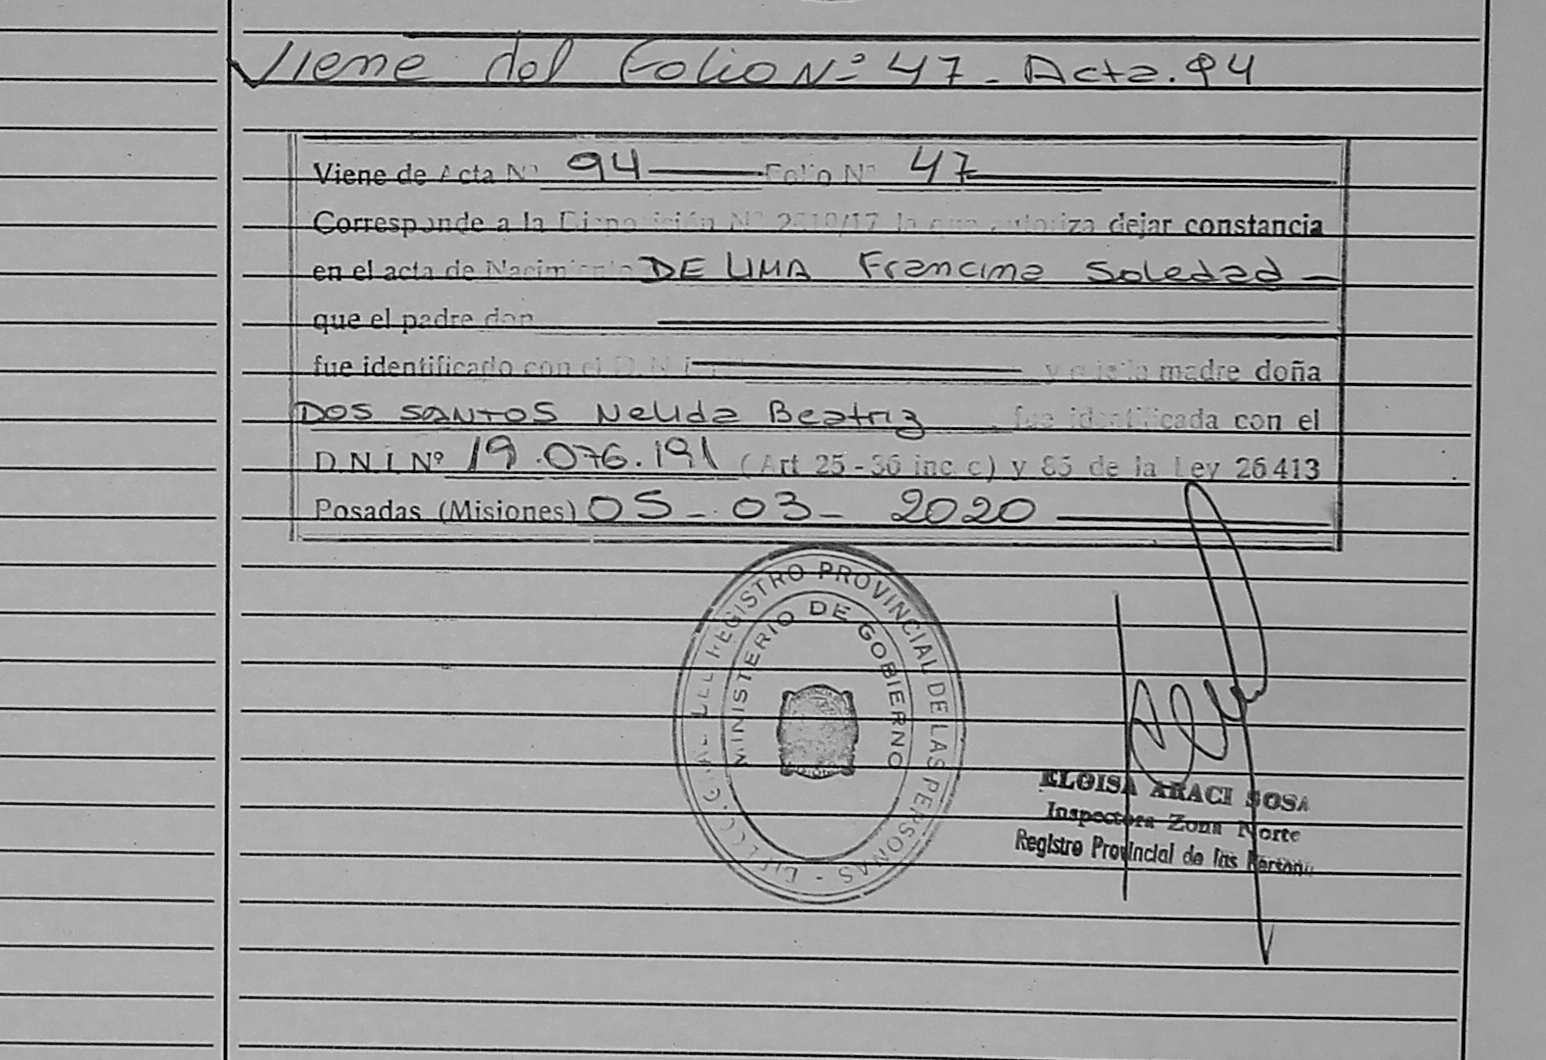 Viene del Folio Nº 47 - Acta. 94
Viene de Acta Nº 94 Folio Nº 47
Corresponde a la Disposición Nº 2510/17 la que autoriza dejar constancia
en el acta de Nacimiento DE LIMA Francina Soledad
que el padre don
fue identificado con el D.N.I. y que la madre doña
DOS SANTOS Nelida Beatriz, fue identificada con el
D.N.I. Nº 19.076.191 (Art 25-36 inc c) y 85 de la Ley 26413
Posadas (Misiones) 05-03-2020
REGISTRO PROVINCIAL DE LAS PERSONAS
MINISTERIO DE GOBIERNO
ELOISA ARACI SOSA
Inspectora Zona Norte
Registro Provincial de las Personas